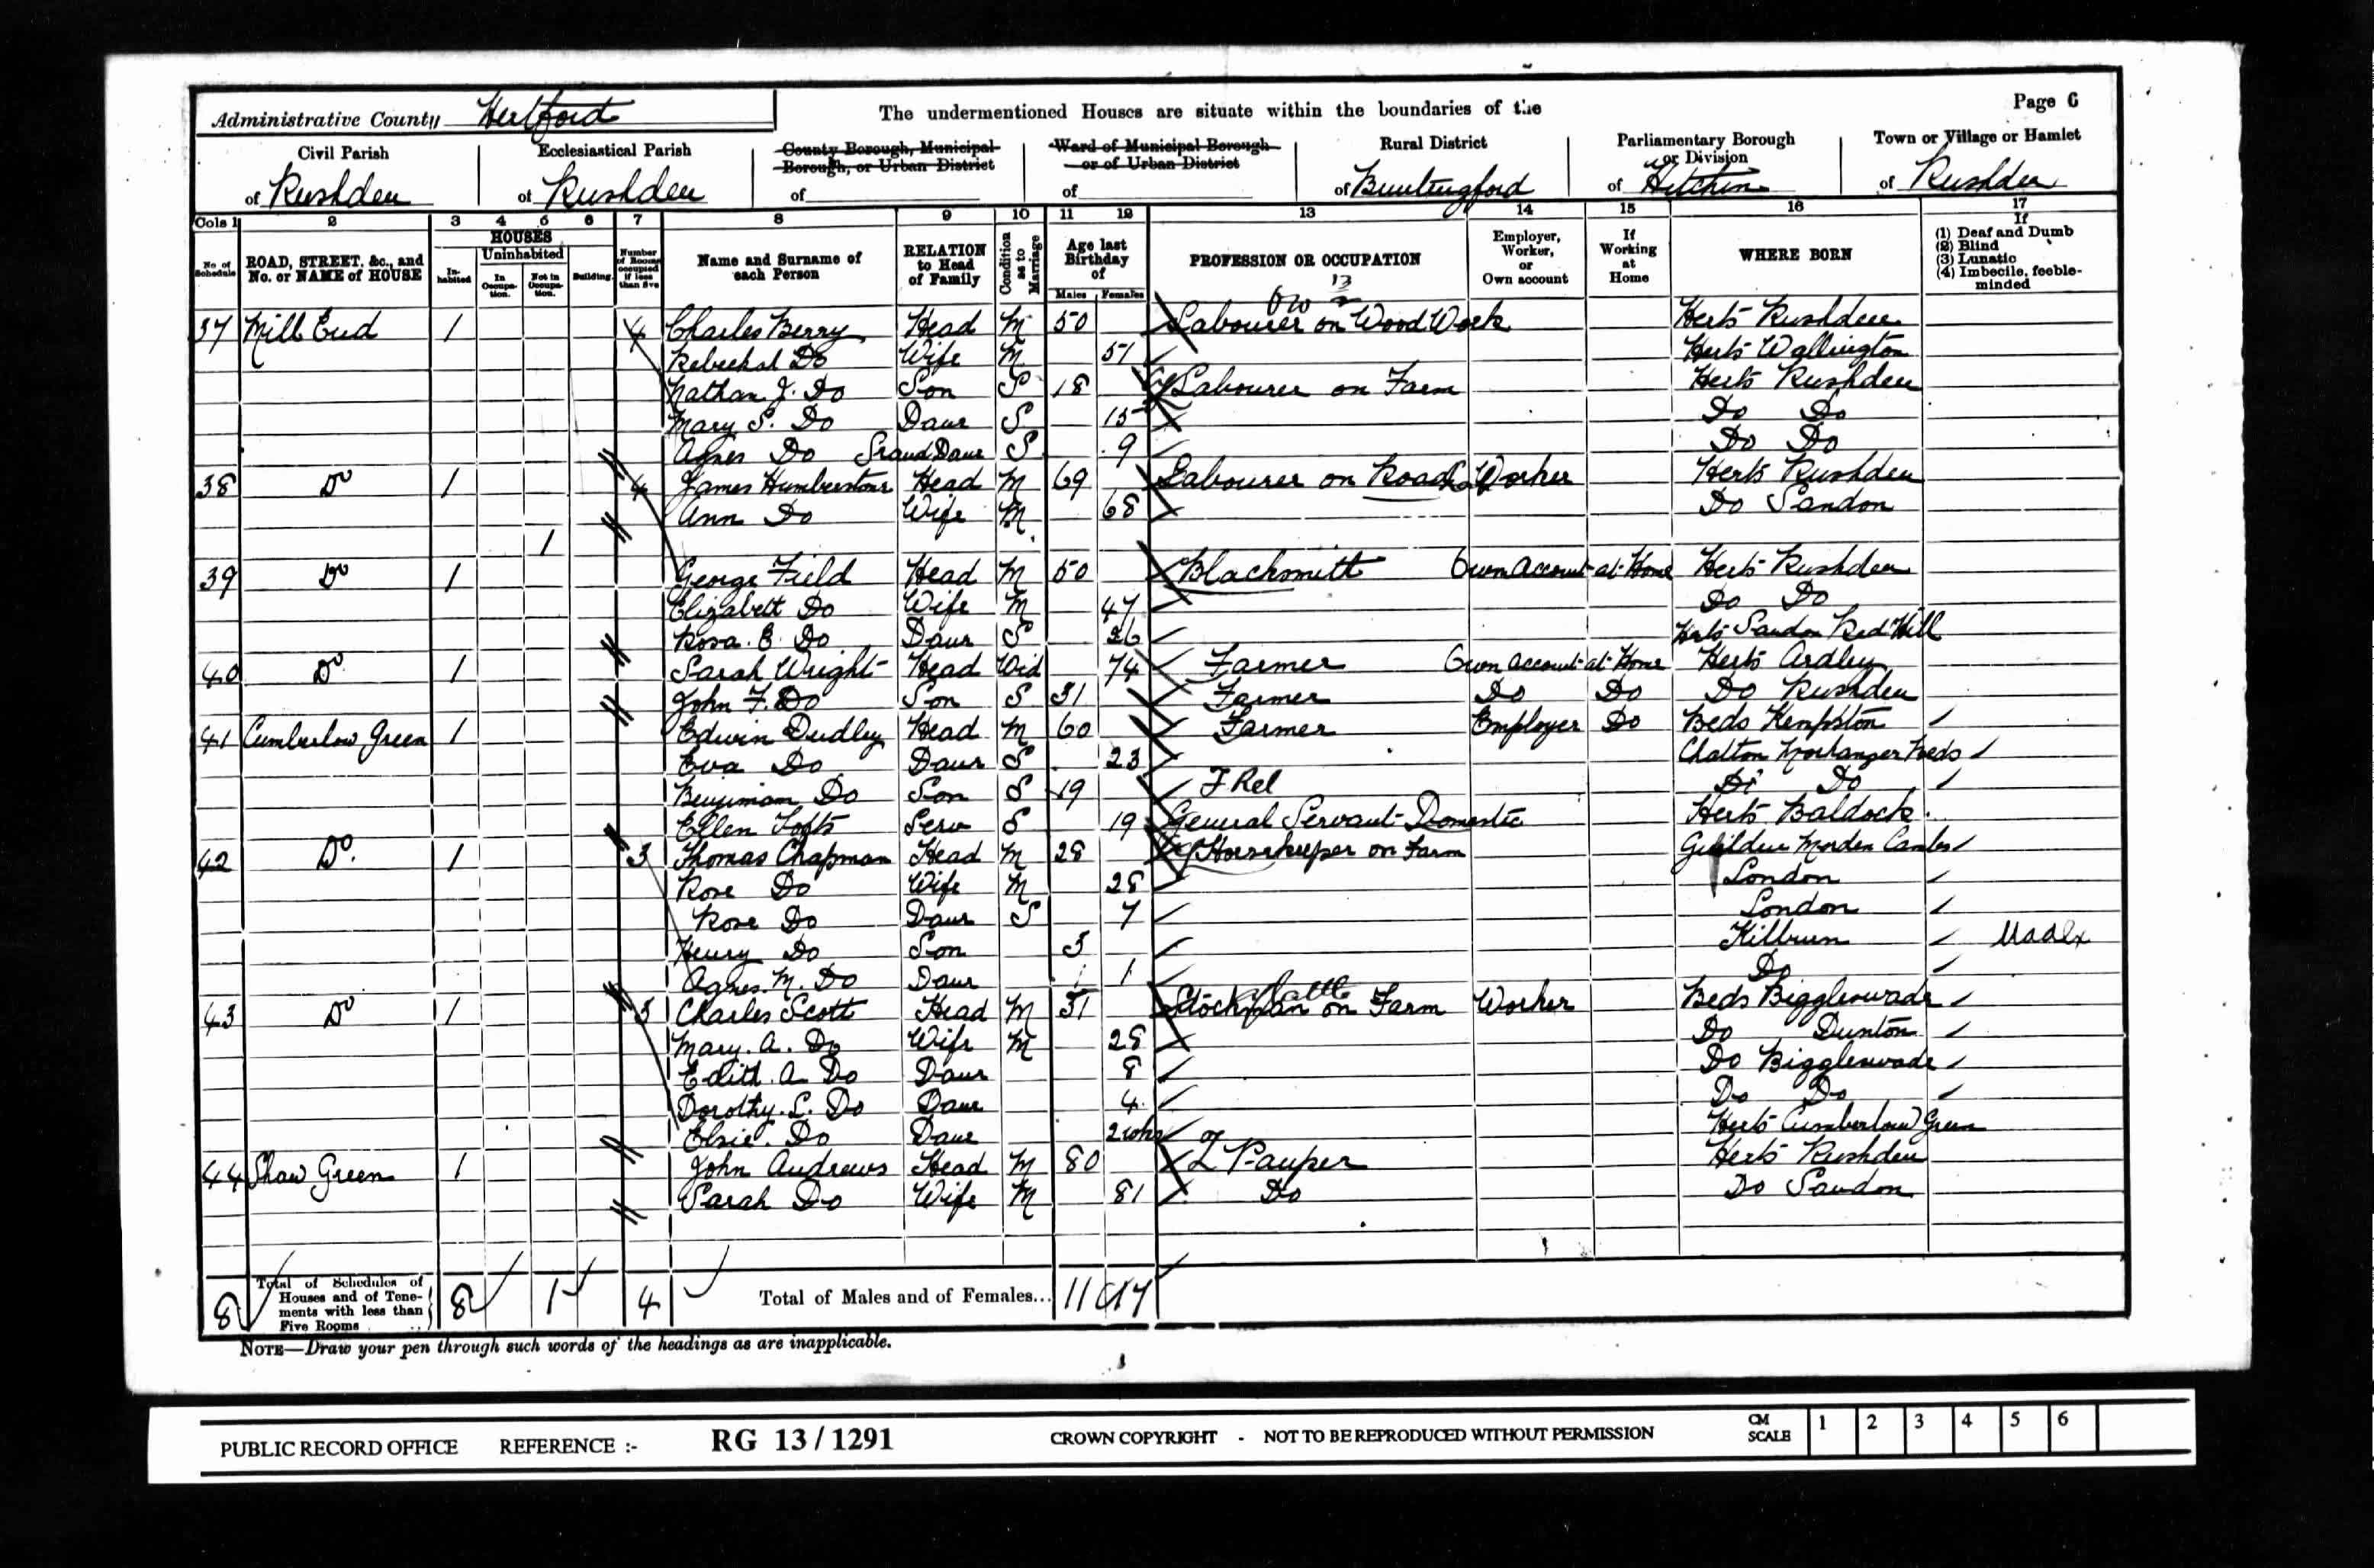 Page 6
Administrative County Hertford
The undermentioned Houses are situate within the boundaries of the
Civil Parish of Rushden
Ecclesiastical Parish of Rushden
County Borough, Municipal Borough, or Urban District of
Ward of Municipal Borough or of Urban District of
Rural District of Buntingford
Parliamentary Borough or Division of Hitchin
Town or Village or Hamlet of Rushden
Cols 1 2 3 4 5 6 7 8 9 10 11 12 13 14 15 16 17
No of Schedule
ROAD, STREET, &c., and No. or NAME of HOUSE
HOUSES
Inhabited
Uninhabited
In Occupation.
Not in Occupation.
Building.
Number of Rooms occupied if less than five
Name and Surname of each Person
RELATION to Head of Family
Condition as to Marriage
Age last Birthday of
Males Females
PROFESSION OR OCCUPATION
Employer, Worker, or Own account
If Working at Home
WHERE BORN
If
(1) Deaf and Dumb
(2) Blind
(3) Lunatic
(4) Imbecile, feeble-minded
37 Mill End 1 4 Charles Berry Head M 50 Labourer on Wood Work Herts Rushden
Rebeckah Do Wife M 51 Herts Wallington
Nathan J. Do Son S 18 Labourer on Farm Herts Rushden
Mary S. Do Daur S 15 Do Do
Agnes Do Grand Daur S 9 Do Do
38 Do 1 4 James Humberstone Head M 69 Labourer on Road Worker Herts Rushden
Ann Do Wife M 68 Do Sandon
1
39 Do 1 George Field Head M 50 Blacksmith Own Account at Home Herts Rushden
Elizabeth Do Wife M 47 Do Do
Rosa. E. Do Daur S 26 Herts Sandon Red Hill
40 Do 1 Sarah Wright Head Wid 74 Farmer Own Account at Home Herts Ardley
John F. Do Son S 31 Farmer Do Do Do Rushden
41 Cumberlow Green 1 Edwin Dudley Head M 60 Farmer Employer Do Beds Kempston
Eva Do Daur S 23 Chalton Beds
Benjimam Do Son S 19 F Rel Do Do
Ellen Tofts Serv S 19 General Servant Domestic Herts Baldock
42 Do. 1 3 Thomas Chapman Head M 28 Horsekeeper on Farm Guilden Morden Cambs
Rose Do Wife M 28 London
Rose Do Daur S 7 London
Henry Do Son 3 Kilburn
Agnes. M. Do Daur 1 Do
43 Do 1 3 Charles Scott Head M 31 Stockman on Farm Worker Beds Biggleswade
Mary. A. Do Wife M 28 Do Dunton
Edith. A Do Daur 8 Do Biggleswade
Dorothy. L. Do Daur 4 Do Do
Elsie. Do Daur 2 wks Herts Cumberlow Green
44 Shaw Green 1 John Andrews Head M 80 Pauper Herts Rushden
Sarah Do Wife M 81 Do Do Sandon
8 Total of Schedules of Houses and of Tenements with less than Five Rooms 8 1 4 Total of Males and of Females... 11 17
NOTE—Draw your pen through such words of the headings as are inapplicable.
PUBLIC RECORD OFFICE REFERENCE :- RG 13 / 1291 CROWN COPYRIGHT - NOT TO BE REPRODUCED WITHOUT PERMISSION CM SCALE 1 2 3 4 5 6